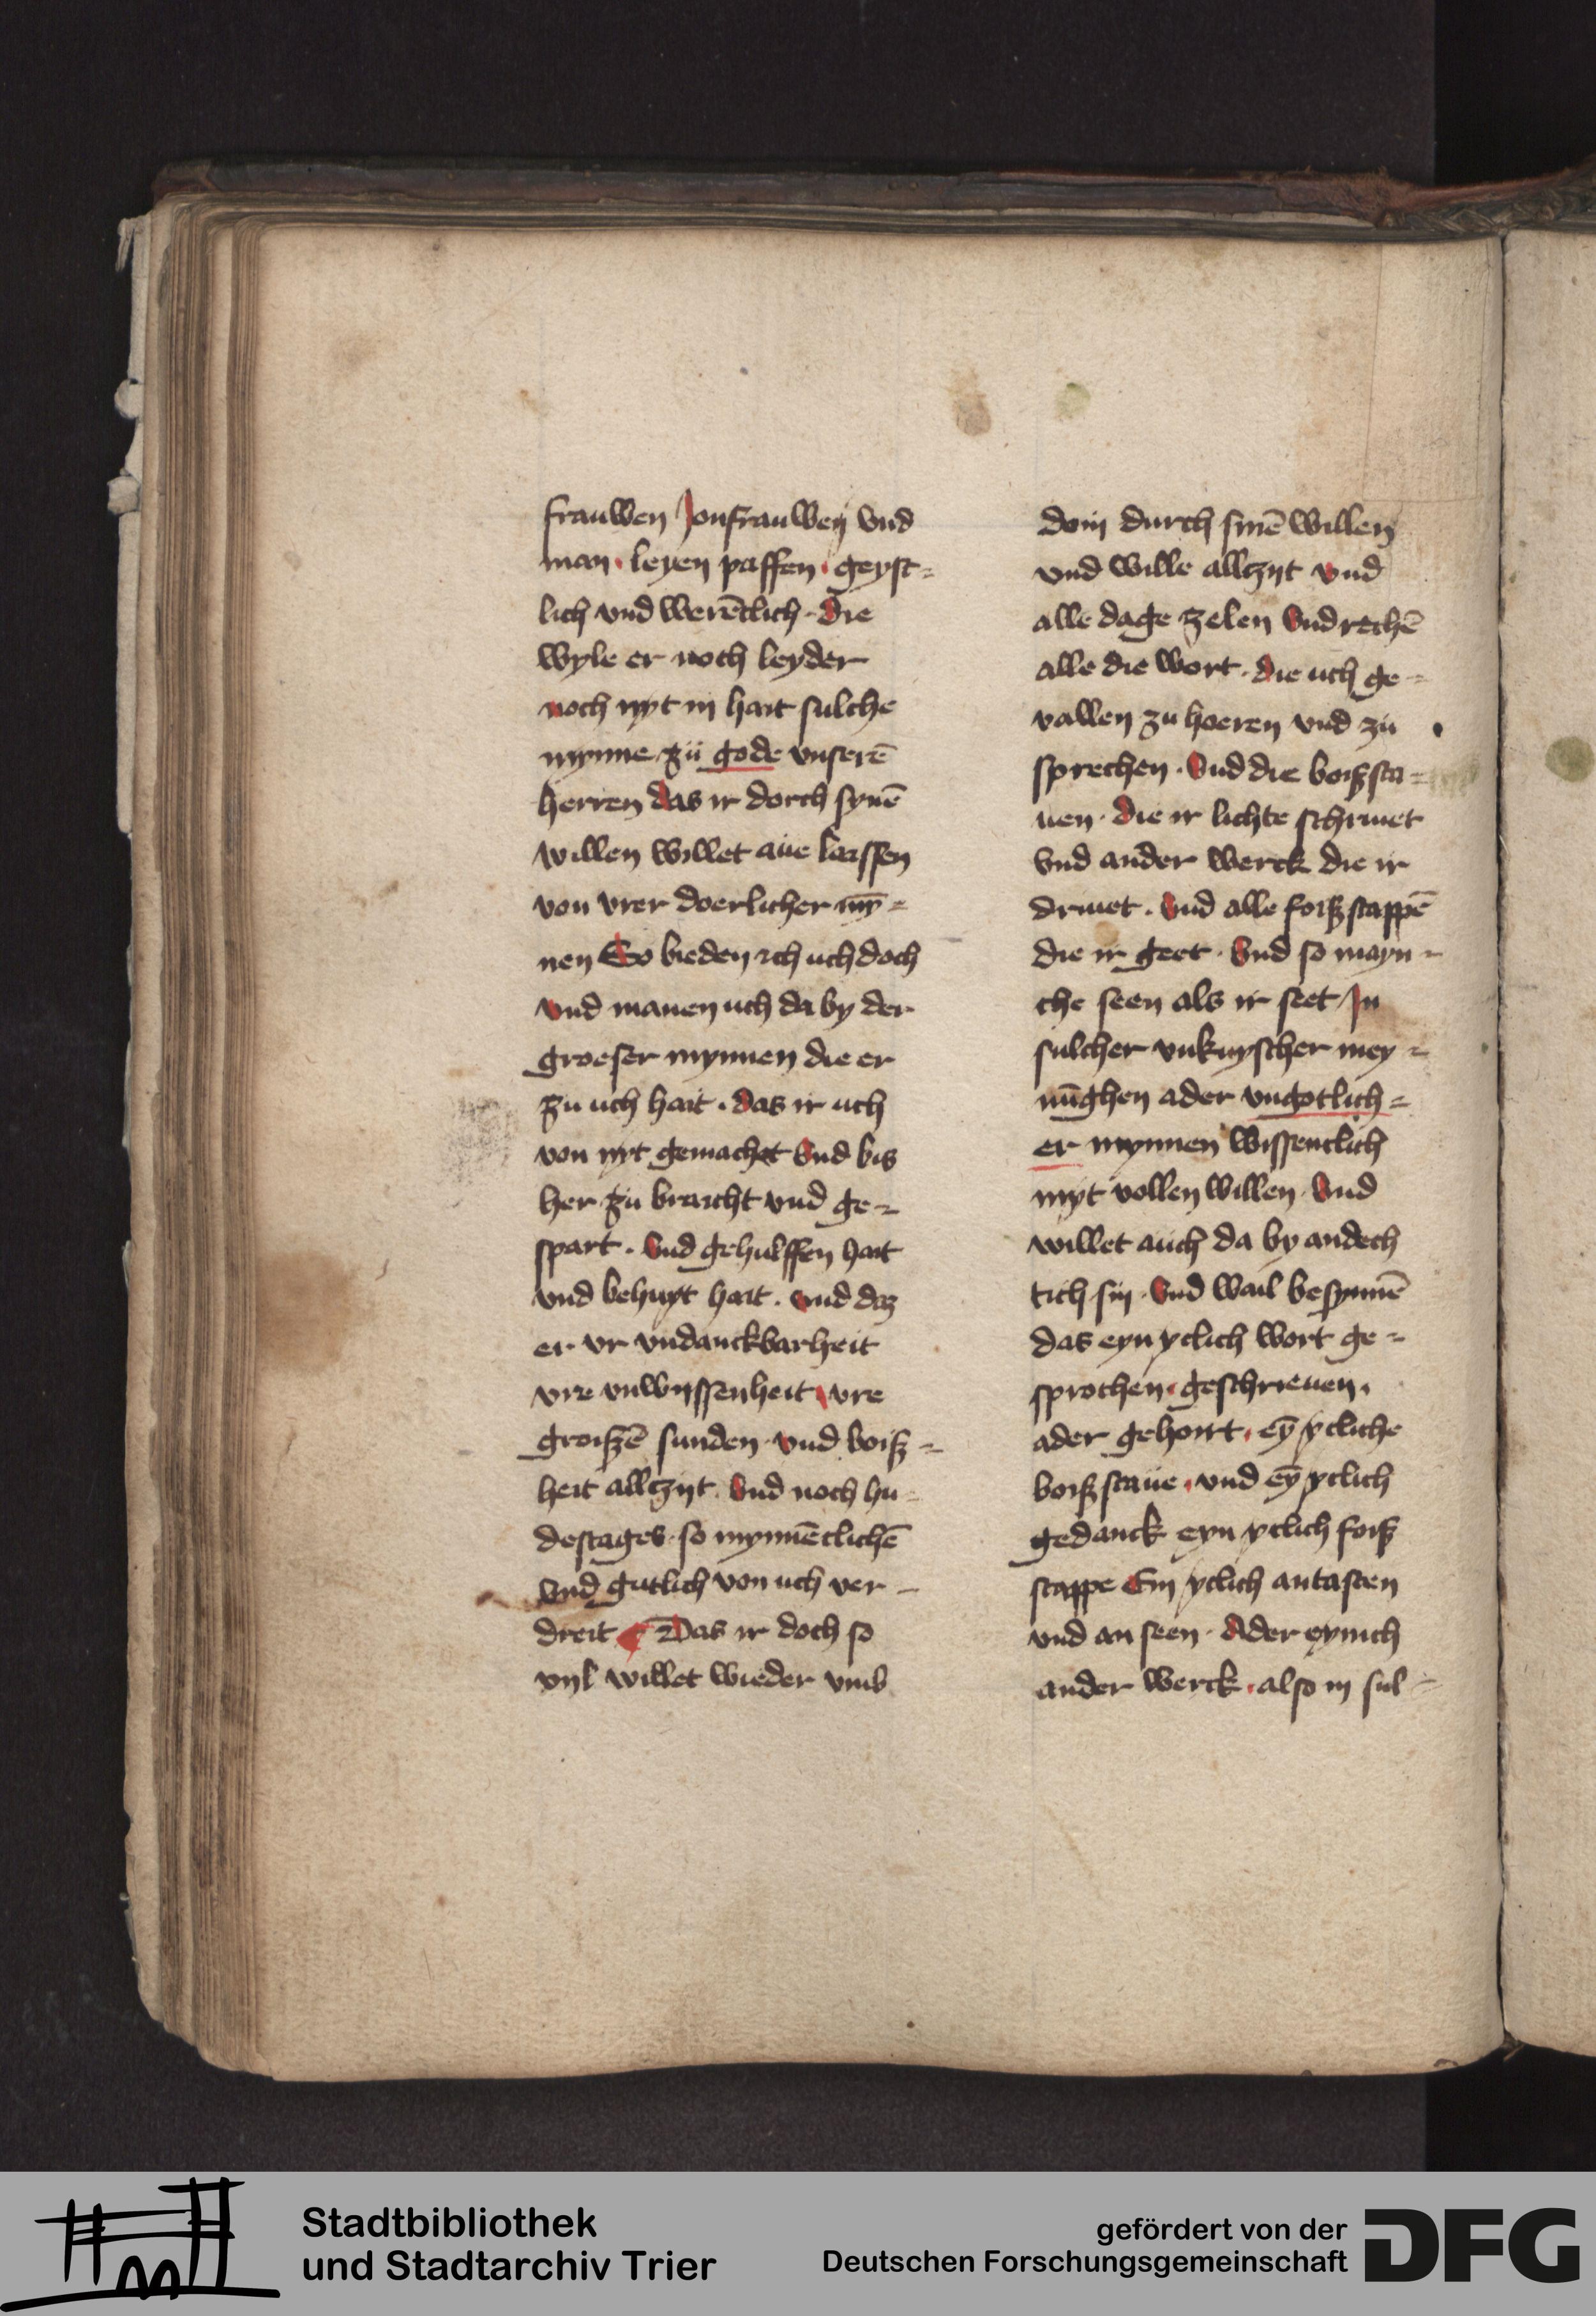 frauwen Jonfrauwen vnd
man · leyen paffen · geyst=
lich vnd werētlich · die
wyle er noch leyder
noch nyt in hait sulche
mynne zü gode vnserē
herren das ir dorch synē
willen willet aüe laissen
von vrer doerlicher mȳ=
nen So bieden ich uch doch
vnd manen uch da by der
groeser mynnen die er
zu uch hait . das ir uch
von nyt gemachet vnd bis
her zu braicht vnd ge=
spart . vnd gehulffen hait
vnd behuyt hait . vnd daz
er vr vndanckbarheit
vre vnwyssenheit vre
groißē sunden · vnd boiß=
heit allczyt . vnd noch hu=
destages · so mynnētlichē
vnd gutlich von uch ver=
dreit Das ir doch so
vyl willet wieder vmb
doin durch sinē willen
vnd wille allczyt vnd
alle dage zelen vnd rechē
alle die wort . die uch ge=
vallen zu hoeren vnd zü
sprechen . vnd die boißsta=
uen · die ir lichte schriuet
vnd ander werck die ir
driuet . vnd alle foißstappē
die ir geet · vnd so mayn=
che seen als ir seet / In
sulcher vnkuyscher mey=
nūghen ader vngotlich=
er mynnen wissentlich
myt vollen willen · vnd
willet auch da by andech
tich sin · vnd wail besynnē
das eyn yclich wort ge=
sprochen · geschrieuen .
ader gehoirt . eȳ ycliche
boißstaüe . vnd eȳ yclich
gedanck eyn yclich foiß
stappe Ein yclich antasten
vnd an seen · Ader eynich
ander werck . also in sul=
Stadtbibliothek
und Stadtarchiv Trier
gefördert von der
Deutschen Forschungsgemeinschaft
DFG